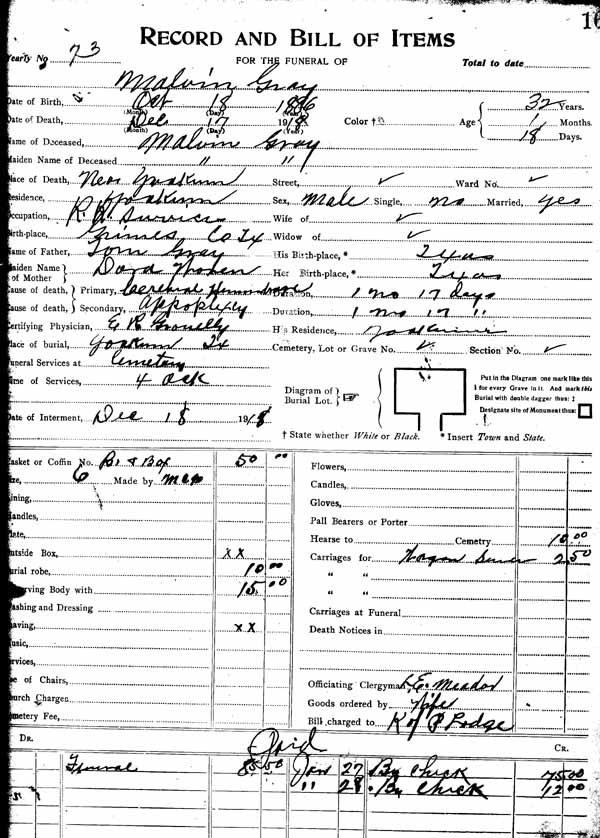 16
RECORD AND BILL OF ITEMS
Yearly No 73 FOR THE FUNERAL OF Total to date
Malvin Gray
Date of Birth, Oct 18 1886
(Month) (Day) (Year)
Date of Death, Dec 17 1918 Color †
(Month) (Day) (Year)
Age 32 Years.
1 Months.
18 Days.
Name of Deceased, Malvin Gray
Maiden Name of Deceased " "
Place of Death, Near Yoakum Street, ✓ Ward No. ✓
Residence, Yoakum Sex, Male Single, no Married, yes
Occupation, R. R. Service Wife of ✓
Birth-place, Grimes Co Tx Widow of ✓
Name of Father, Tom Gray His Birth-place,* Texas
Maiden Name of Mother Dora Her Birth-place,* Texas
Cause of death, Primary, Cerebral Hemorrhage Duration, 1 mo 17 days
Cause of death, Secondary, Appoplexly Duration, 1 mo 17 "
Certifying Physician, E R His Residence, Yoakum
Place of burial, Yoakum Tx Cemetery, Lot or Grave No. ✓ Section No. ✓
Funeral Services at Cemetery
Time of Services, 4 ock
Diagram of Burial Lot.
Put in the Diagram one mark like this
I for every Grave in it. And mark this
Burial with double dagger thus: ‡
Designate site of Monument thus:
Date of Interment, Dec 18 1918
† State whether White or Black. * Insert Town and State.
Casket or Coffin No. Bl & Box 50 00
Size, 6 Made by
Lining,
Handles,
Plate,
Outside Box, x x
Burial robe, 10 00
Preserving Body with 15 00
Washing and Dressing
Shaving, x x
Music,
Services,
Use of Chairs,
Church Charges
Cemetery Fee,
Flowers,
Candles,
Gloves,
Pall Bearers or Porter
Hearse to Cemetry 10 00
Carriages for Wagon Service 2 50
" "
" "
Carriages at Funeral
Death Notices in
Officiating Clergyman, E. Meador
Goods ordered by Wife
Bill charged to K of P Lodge
DR. Paid CR.
Funeral Jan 27 By Check 75 00
" 28 By Check 12 00